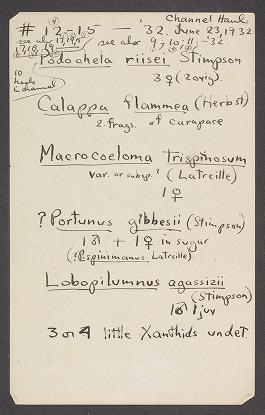 Channel Haul
# 12-15 — '32. June 23, 1932
see also 13, 14, 15
17, 18, 19
see also 7-10; 11 - 32
Podochela riisei Stimpson
10
hauls
Channel
3♀ (2 ovig).
Calappa flammea (Herbst)
2 frags. of carapace
Macrocoeloma trispinosum
var. or subsp.? (Latreille)
1♀
? Portunus gibbesii (Stimpson)
1♂ + 1♀ in sugar
(? P. spinimanus Latreille).
Lobopilumnus agassizii
(Stimpson)
1♂ 1 juv
3 or 4 little Xanthids undet.